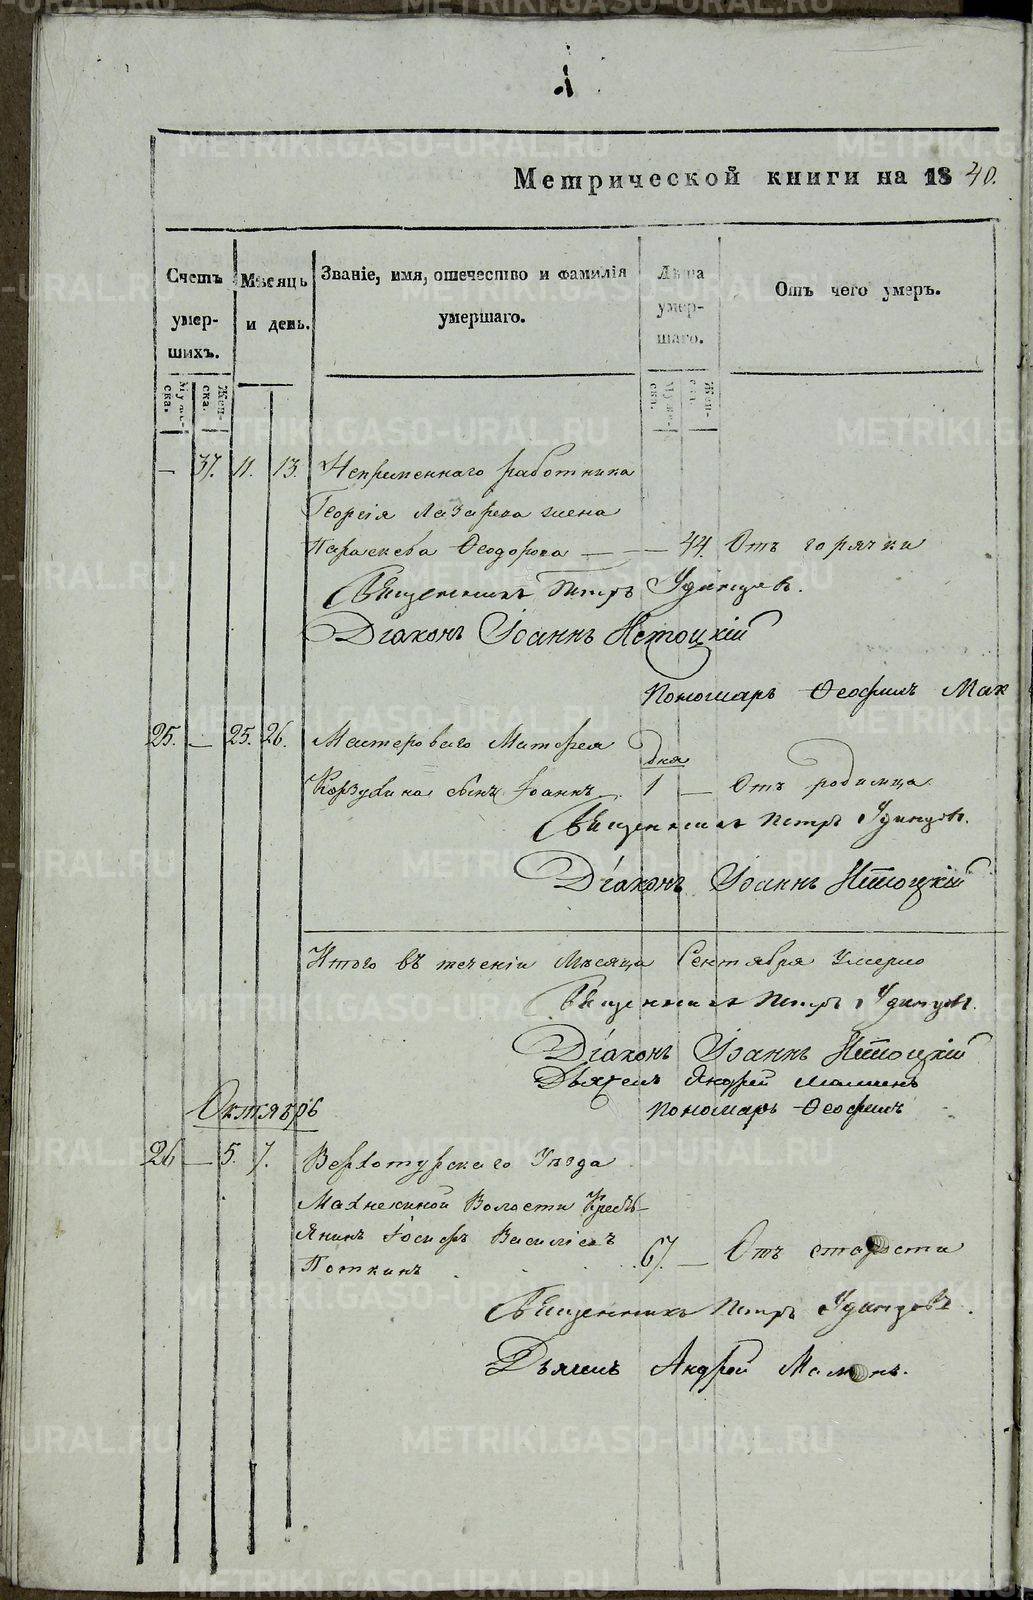 Метрической книги на 1840.
Счетъ умершихъ.
Мѣсяцъ и день.
Званіе, имя, отечество и фамилія умершаго.
Лѣта умершаго.
Отъ чего умеръ.
Мужеска.
Женска.
Мужеска.
Женска.
— 37. 11. 13. Непременнаго работника
Георгія Лазарева жена
Параскева Ѳеодорова — — — 44. Отъ горячки
Священникъ Петръ Удинцовъ.
Діаконъ Іоаннъ Нетоцкій
Пономарь Ѳеофилъ Мак
25. — 25. 26. Мастероваго Матфея
Дня
Корзухина сынъ Іоаннъ — 1 — Отъ родимца
Священникъ Петръ Удинцовъ.
Діаконъ Іоаннъ Нетоцкій
Итого въ теченіи Мѣсяца Сентября Умерло
Священникъ Петръ Удинцовъ.
Діаконъ Іоаннъ Нетоцкій
Дьячекъ Андрей
Пономарь Ѳеофилъ
Октябрь
26 — 5. 7. Верхотурскаго Уѣзда
Махневской Волости Кресть-
янинъ Іосифъ Васильевъ
Поткинъ 67. — Отъ старости
Священникъ Петръ Удинцовъ.
Дьячекъ Андрей
METRIKI.GASO-URAL.RU